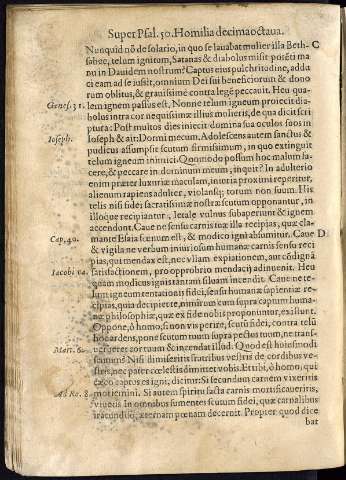 Super Psal. 50. Homilia decimaoctaua.
Nunquid nõ de solario, in quo se lauabat mulier illa Beth- C
sabee, telum ignitum, Satanas & diabolus misit potẽti ma
nu in Dauidem nostrum? Captus eius pulchritudine, addu
ci eam ad se iussit, omnium Dei sui beneficiorum & dono
rum oblitus, & grauissimè contra legẽ peccauit. Heu qua-
Genes. 31. lem ignem passus est, Nonne telum igneum proiecit dia-
bolus intra cor nequissimæ illius mulieris, de qua dicit scri
ptura: Post multos dies iniecit domina sua oculos suos in
Ioseph. Ioseph & ait: Dormi mecum. Adolescens autem sanctus &
pudicus assumpsit scutum firmissimum, in quo extinguit
telum igneum inimici: Quomodo possum hoc malum fa-
cere, & peccare in dominum meum, inquit? In adulterio
enim præter luxuriæ maculam, iniuria proximi reperitur,
alienum rapiens adulter, violansq; torum non suum. His
telis nisi fidei sacratissimæ nostræ scutum opponantur, in
illoque recipiantur, letale vulnus subaperunt & ignem
accendont. Caue ne sensu carnis tuæ illa recipias, quæ cla-
Cap. 40. mante Esaia fœnum est, & modico igni absumitur. Caue D
& vigila ne verbum iniuriosum humanæ carnis sensu reci
pias, qui mendax est, nec vllam expiationem, aut cõdignã
Iacobi satisfactionem, pro opprobrio mendacij adinuenit. Heu
quam modicus ignis tantam siluam incendit. Caue ne te-
lum igneum tentationis fidei, sensu humanæ sapientiæ re-
cipias, quia decipiere, nimirum cum supra captum huma-
næ philosophiæ, quæ ex fide nobis proponuntur, exsistunt.
Oppone, ô homo, si non vis perire, scutũ fidei, contra telũ
hoc ardens, pone scutum tuum supra pectus tuum, ne trans
uerberet cor tuum & incendat illud. Quod est huiusmodi
Matt. 6. scutum? Nisi dimiseritis fratribus vestris de cordibus ve-
stris, nec pater cœlestis dimittet vobis. Et tibi, ô homo, qui
cæco captus es igni, dicitur: Si secundum carnem vixeritis
Ad Ro. 8. moriemini. Si autem spiritu facta carnis mortificaueritis,
viuetis. In omnibus sumentes scutum fidei, quæ carnalibus
iracundijs, æternam pœnam decernit. Propter quod dice
bat